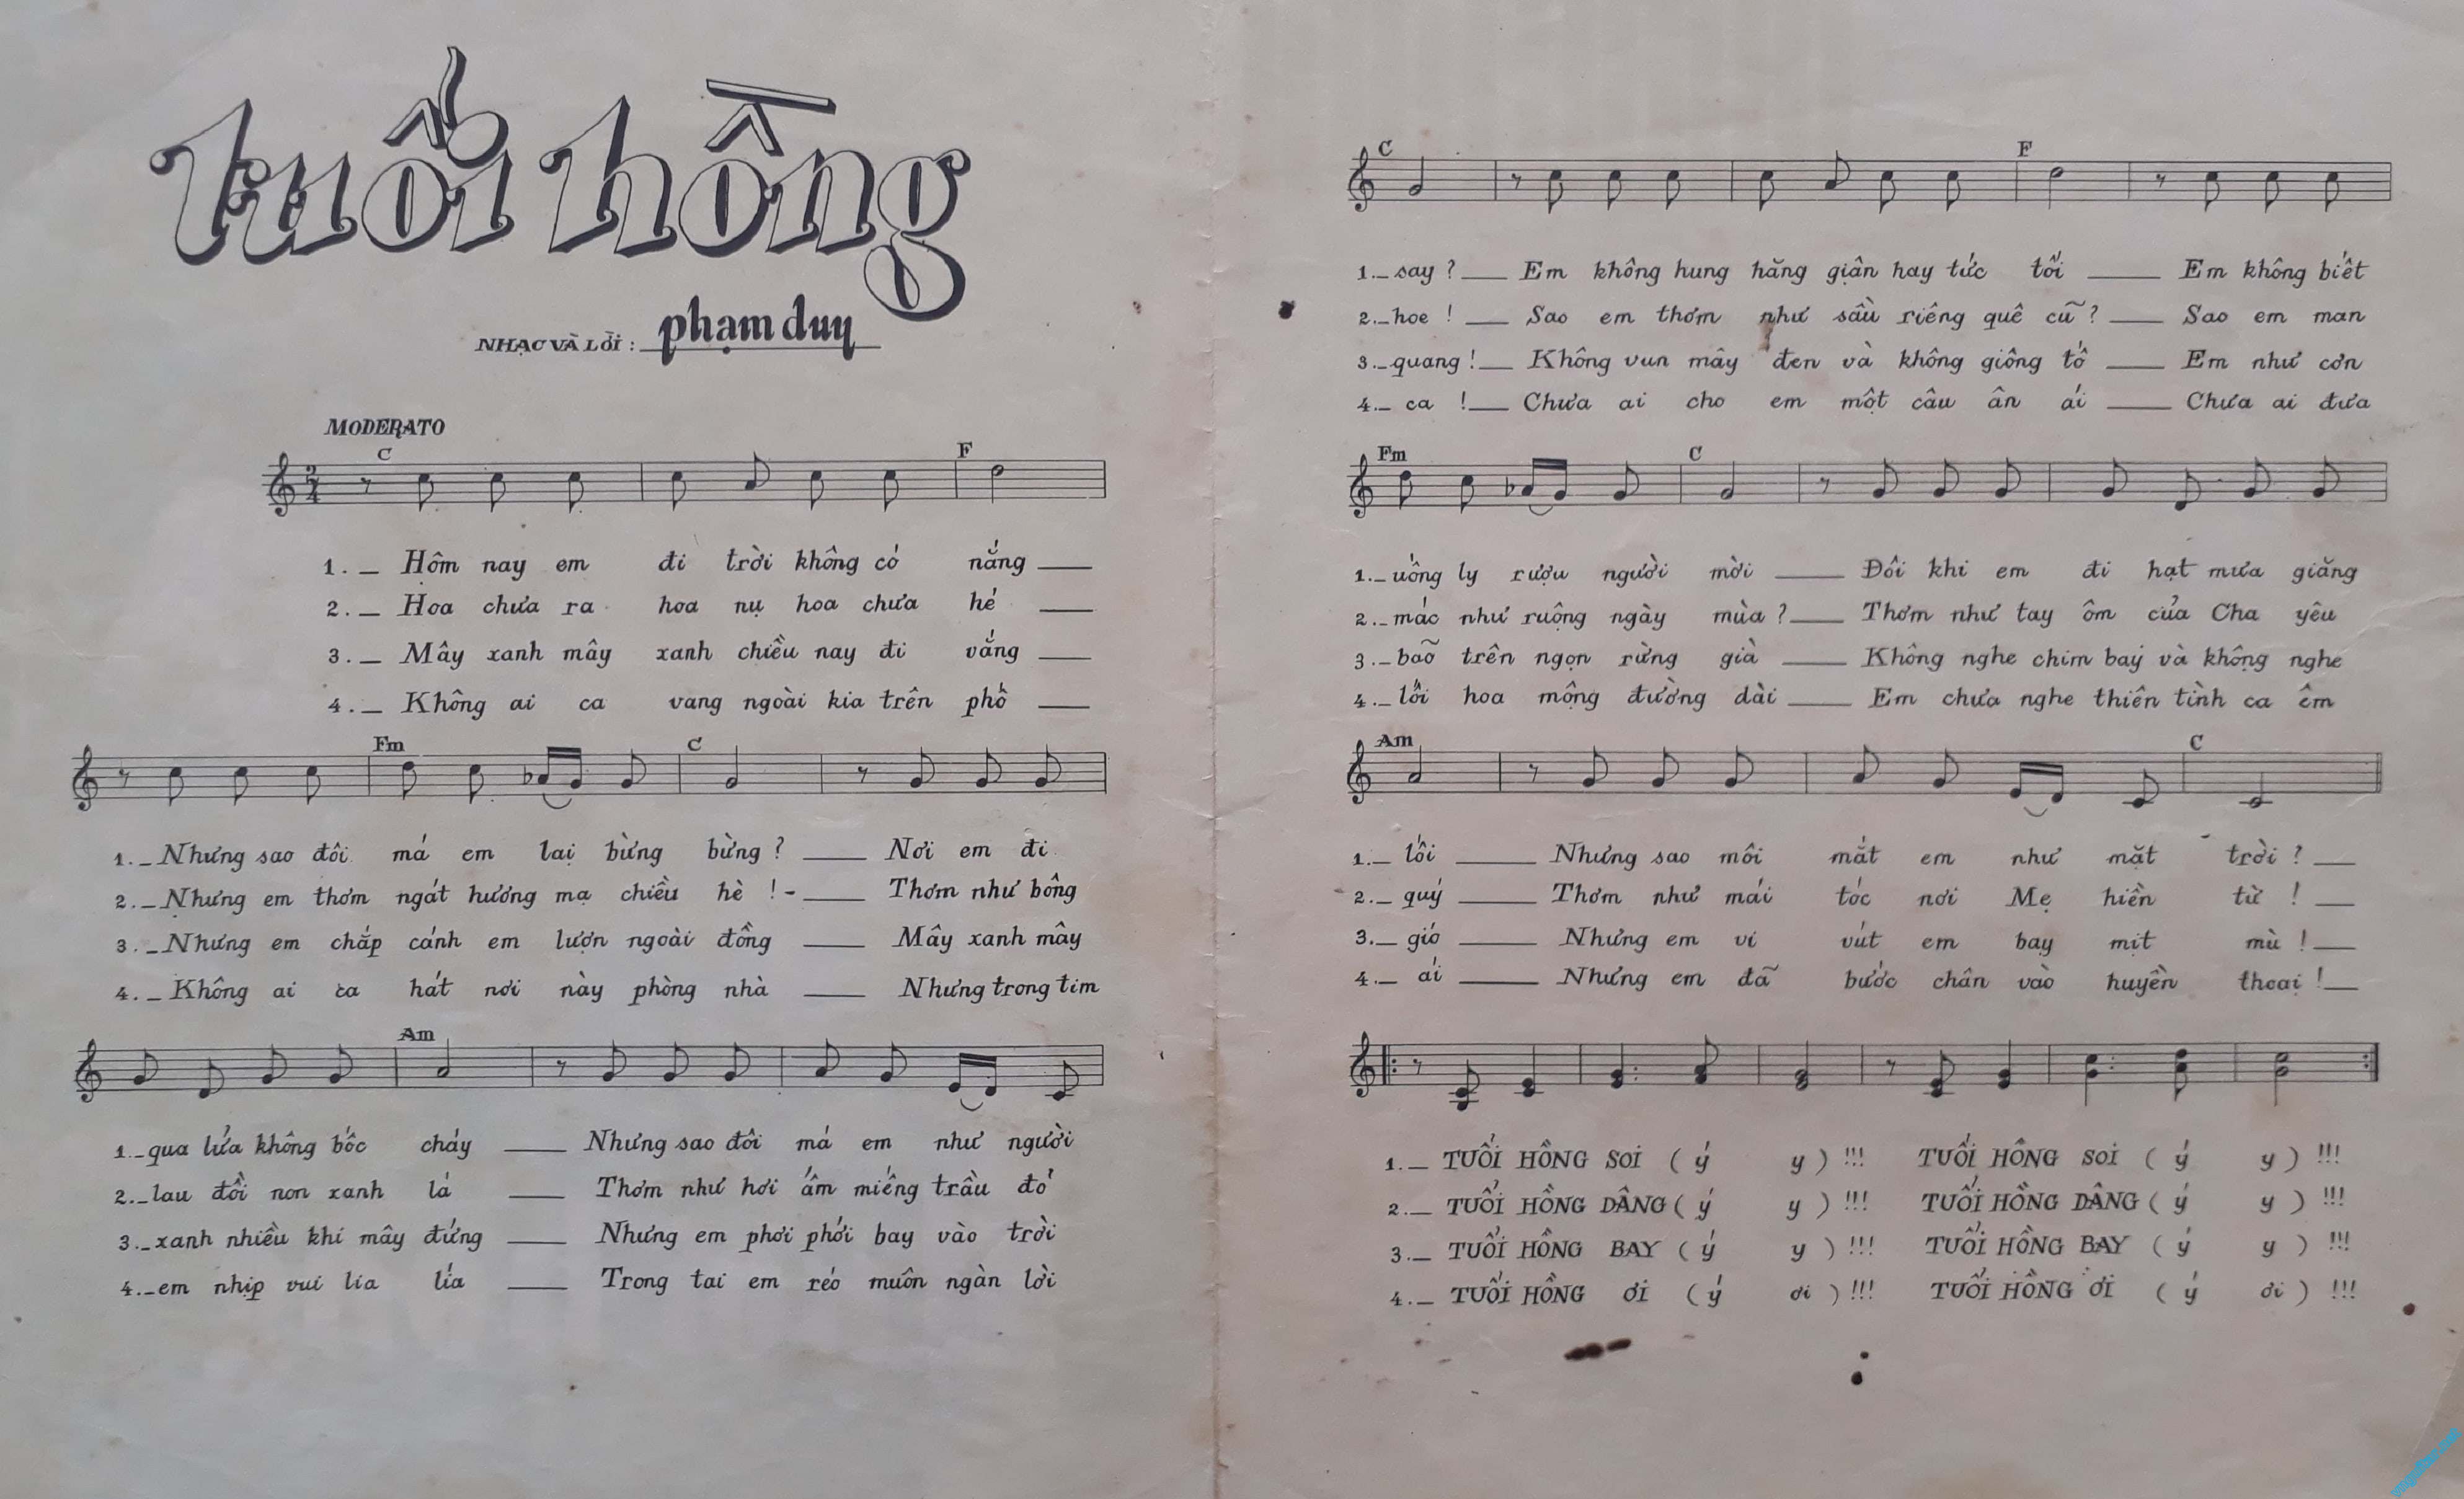 tuổi hồng
NHẠC VÀ LỜI : phạm duy
MODERATO
C F
2 4
1._ Hôm nay em đi trời không có nắng ___
2._ Hoa chưa ra hoa nụ hoa chưa hé ___
3._ Mây xanh mây xanh chiều nay đi vắng ___
4._ Không ai ca vang ngoài kia trên phố ___
Fm C
1._ Nhưng sao đôi má em lại bừng bừng ? ___ Nơi em đi
2._ Nhưng em thơm ngát hương mạ chiều hè ! - ___ Thơm như bông
3._ Nhưng em chắp cánh em lượn ngoài đồng ___ Mây xanh mây
4._ Không ai ca hát nơi này phòng nhà ___ Nhưng trong tim
Am
1._ qua lửa không bốc cháy ___ Nhưng sao đôi má em như người
2._ lau đồi non xanh lá ___ Thơm như hơi ấm miếng trầu đỏ
3._ xanh nhiều khi mây đứng ___ Nhưng em phơi phới bay vào trời
4._ em nhịp vui lia lía ___ Trong tai em réo muôn ngàn lời
C F
1._ say ? ___ Em không hung hăng giận hay tức tối ___ Em không biết
2._ hoe ! ___ Sao em thơm như sầu riêng quê cũ ? ___ Sao em man
3._ quang ! ___ Không vun mây đen và không giông tố ___ Em như cơn
4._ ca ! ___ Chưa ai cho em một câu ân ái ___ Chưa ai đưa
Fm C
1._ uống ly rượu người mời ___ Đôi khi em đi hạt mưa giăng
2._ mác như ruộng ngày mùa ? ___ Thơm như tay ôm của Cha yêu
3._ bão trên ngọn rừng già ___ Không nghe chim bay và không nghe
4._ lối hoa mộng đường dài ___ Em chưa nghe thiên tình ca êm
Am C
1._ lối ___ Nhưng sao môi mắt em như mặt trời ? ___
2._ quý ___ Thơm như mái tóc nơi Mẹ hiền từ ! ___
3._ gió ___ Nhưng em vi vút em bay mịt mù ! ___
4._ ái ___ Nhưng em đã bước chân vào huyền thoại ! ___
1._ TUỔI HỒNG SOI ( ý y ) !!! TUỔI HỒNG SOI ( ý y ) !!!
2._ TUỔI HỒNG DÂNG ( ý y ) !!! TUỔI HỒNG DÂNG ( ý y ) !!!
3._ TUỔI HỒNG BAY ( ý y ) !!! TUỔI HỒNG BAY ( ý y ) !!!
4._ TUỔI HỒNG ƠI ( ý ơi ) !!! TUỔI HỒNG ƠI ( ý ơi ) !!!